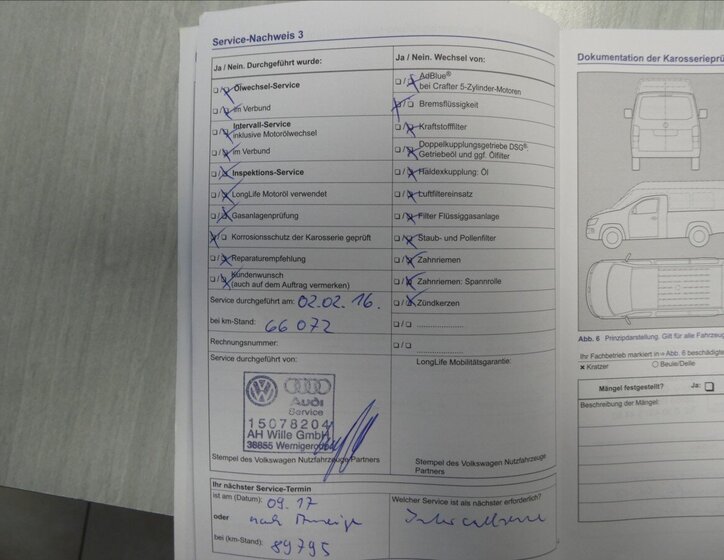 Service-Nachweis 3
Ja / Nein. Durchgeführt wurde:
Ölwechsel-Service
im Verbund
Intervall-Service
inklusive Motorölwechsel
im Verbund
Inspektions-Service
LongLife Motoröl verwendet
Gasanlagenprüfung
Korrosionsschutz der Karosserie geprüft
Reparaturempfehlung
Kundenwunsch
(auch auf dem Auftrag vermerken)
Service durchgeführt am: 02.02.16.
bei km-Stand: 66 072
Rechnungsnummer:
Service durchgeführt von:
Audi
Service
15078204
AH Wille GmbH
38855 Wernigerode
Stempel des Volkswagen Nutzfahrzeuge Partners
Ja / Nein. Wechsel von:
AdBlue®
bei Crafter 5-Zylinder-Motoren
Bremsflüssigkeit
Kraftstofffilter
Doppelkupplungsgetriebe DSG®:
Getriebeöl und ggf. Ölfilter
Haldexkupplung: Öl
Luftfiltereinsatz
Filter Flüssiggasanlage
Staub- und Pollenfilter
Zahnriemen
Zahnriemen: Spannrolle
Zündkerzen
LongLife Mobilitätsgarantie:
Stempel des Volkswagen Nutzfahrzeuge
Partners
Ihr nächster Service-Termin
ist am (Datum): 09.17
oder nach Anzeige
bei (km-Stand): 89795
Welcher Service ist als nächster erforderlich?
Dokumentation der Karosserieprü
Abb. 6 Prinzipdarstellung. Gilt für alle Fahrzeug
Ihr Fachbetrieb markiert in Abb. 6 beschädigte
x Kratzer
Beule/Delle
Mängel festgestellt? Ja:
Beschreibung der Mängel: